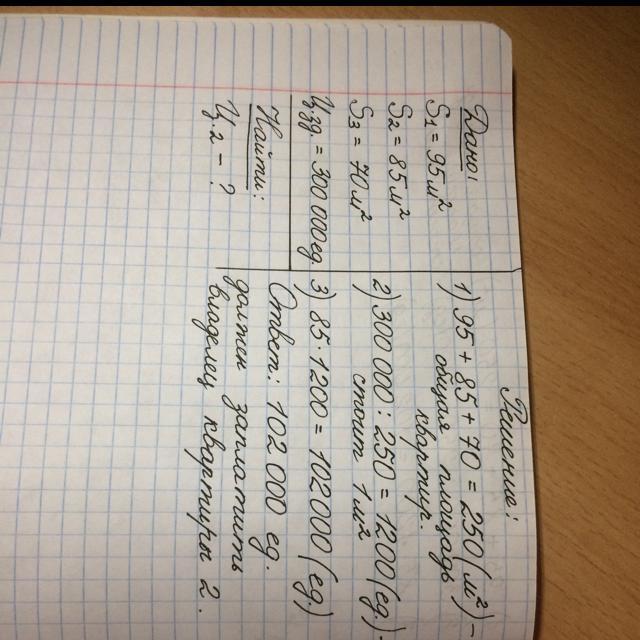 Дано:
S₁ = 95 м²
S₂ = 85 м²
S₃ = 70 м²
Цзд = 300 000 ед.
Найти:
Ц2 - ?
Решение:
1) 95 + 85 + 70 = 250 (м²) -
общая площадь
квартир.
2) 300 000 : 250 = 1200 (ед) -
стоит 1 м²
3) 85 · 1200 = 102 000 (ед.)
Ответ: 102 000 ед.
должен заплатить
владелец квартиры 2.